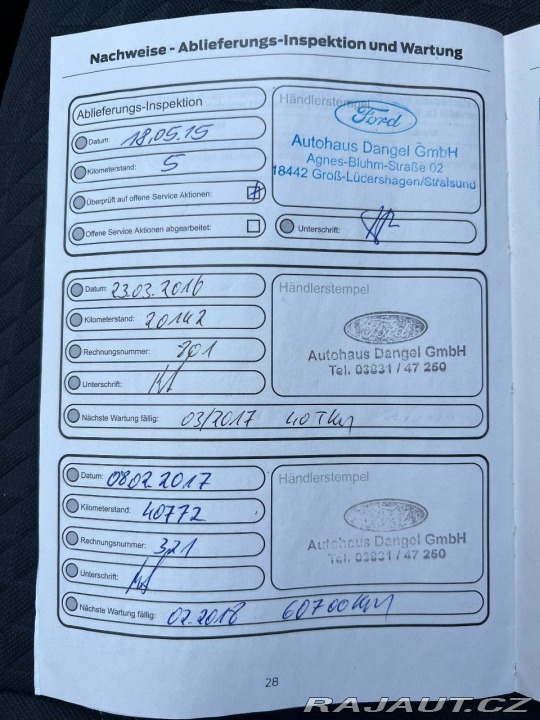 Nachweise - Ablieferungs-Inspektion und Wartung
Ablieferungs-Inspektion
Datum: 18.05.15
Kilometerstand: 5
Überprüft auf offene Service Aktionen:
Offene Service Aktionen abgearbeitet:
Händlerstempel
Ford
Autohaus Dangel GmbH
Agnes-Bluhm-Straße 02
18442 Groß-Lüdershagen/Stralsund
Unterschrift:
Datum: 23.03.2016
Kilometerstand: 20142
Rechnungsnummer: 801
Unterschrift:
Händlerstempel
Autohaus Dangel GmbH
Tel. 03831 / 47 250
Nächste Wartung fällig: 03/2017 40 TKm
Datum: 08.02.2017
Kilometerstand: 40772
Rechnungsnummer: 321
Unterschrift:
Händlerstempel
Autohaus Dangel GmbH
Tel. 03831 / 47 250
Nächste Wartung fällig: 02.2018 60700 Km
28
RAJAUT.CZ